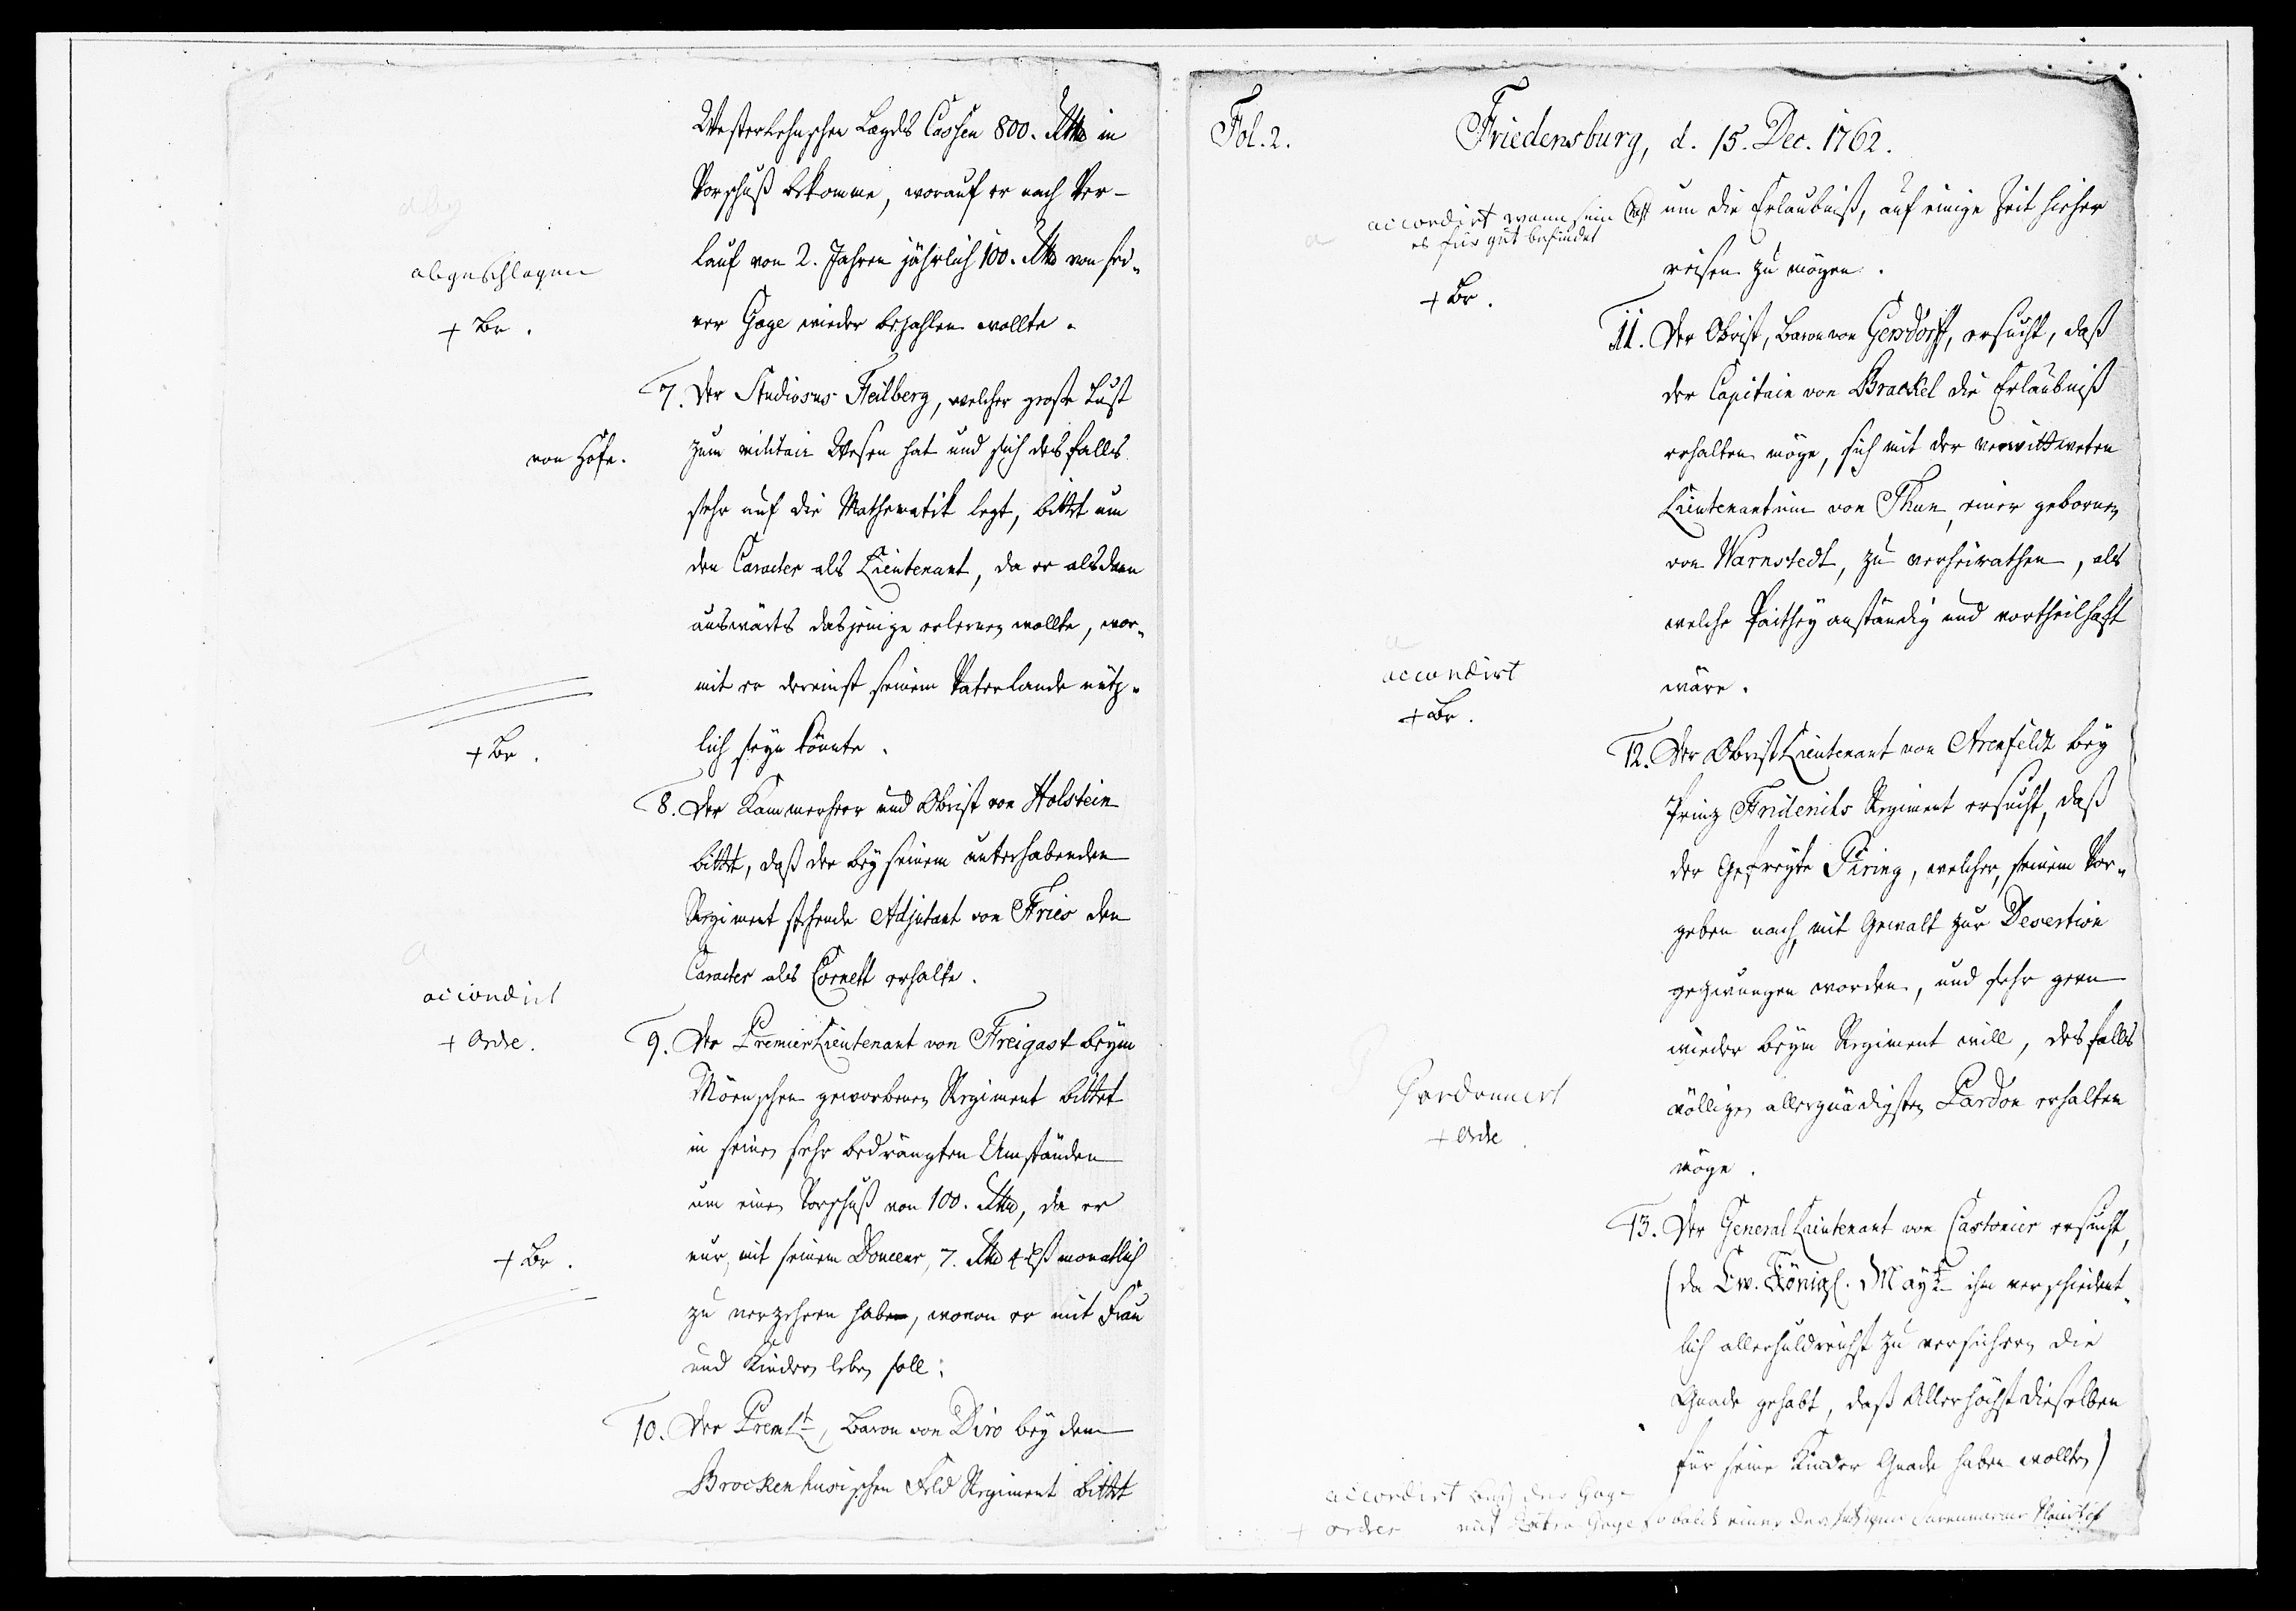 Westerlehnschen Lægds Cassen 800. Rthlr in
Vorschuß bekomme, worauf er nach Ver-
lauf von 2. Jahren jährlich 100. Rthlr von sei-
abgeschlagen
+ Br.
ner Gage wieder bezahlen wollte.
7. Der Studiosus Feilberg, welcher große Lust
von Hofe.
zum militair Wesen hat und sich desfalls
sehr auf die Mathematik legt, bittet um
den Caracter als Lieutenant, da er alsdann
auswärts dasjenige erlernen wollte, wor-
mit er dereinst seinem Vaterlande nütz-
+ Br.
lich seyn könnte.
8. Der Kammerherr und Obrist von Holstein
bittet, daß der bey seinem unterhabenden
Regiment stehende Adjutant von Fries den
Caracter als Cornett erhalte.
accordirt
+ Ordre.
9. Der PremierLieutenant von Freigast beym
Möenschen geworbenen Regiment bittet
in seinen sehr bedrängten Umständen
um einen Vorschuß von 100. Rthlr, da er
+ Br.
nur, mit seinem Douceur, 7. Rthlr 4 lß monatlich
zu verzehren haben, wovon er mit Frau
und Kinder leben soll.
10. Der Premlt, Baron von Diro bey dem
Brockenhusischen Feld Regiment bittet
Fol. 2.
Friedensburg, d. 15. Dec. 1762.
accordirt wann sein Chef
es für gut befindet
+ Br.
um die Erlaubniß, auf einige Zeit hieher
reisen zu mögen.
11. Der Obrist, Baron von Gersdorff, ersucht, daß
der Capitain von Brackel die Erlaubniß
erhalten möge, sich mit der verwittweten
Lieutenantinn von Thun, einer gebornen
von Warnstedt, zu verheirathen, als
welche Parthey anständig und vortheilhaft
accordirt
+ Br.
wäre.
12. Der ObristLieutenant von Arenfeldt bey
Prinz Friderichs Regiment ersucht, daß
der Gefreyte Piring, welcher, seinem Vor-
geben nach, mit Gewalt zur Desertion
gezwungen worden, und sehr gern
wieder beym Regiment will, desfalls
völligen allergnädigsten Pardon erhalten
Pardonnirt
+ Ordre
möge.
13. Der GeneralLieutenant von Castonier ersucht,
(da Ew. Königl. Mayt ihm verschiedent-
lich allerhuldreichst zu versichern die
Gnade gehabt, daß Allerhöchst Dieselben
für seine Kinder Gnade haben wollten)
accordirt
+ ordres